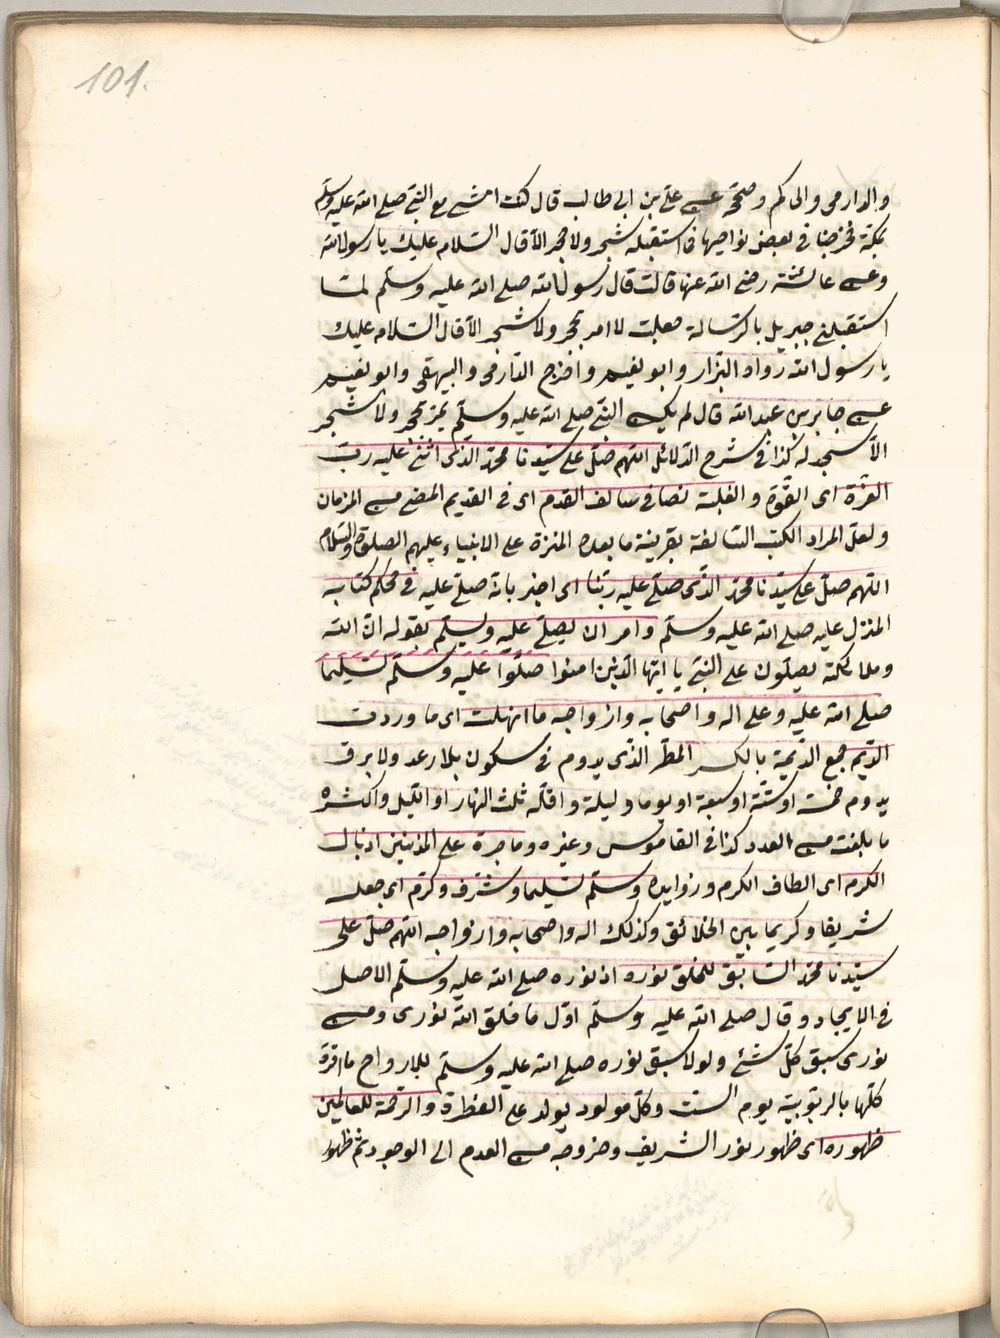 101.
والدارمى والحاكم وصححه عن على بن ابى طالب قال كنت امشى مع النبى صلى الله عليه وسلم
بمكة فخرجنا فى بعض نواحيها فما استقبله شجر ولا حجر الا قال السلام عليك يا رسول الله
وعن عائشة رضى الله عنها قالت قال رسول الله صلى الله عليه وسلم لما
استقبلنى جبريل بالرسالة جعلت لا امر بحجر ولا شجر الا قال السلام عليك
يا رسول الله رواه البزار وابو نعيم واخرج الدارمى والبيهقى وابو نعيم
عن جابر بن عبد الله قال لم يكن النبى صلى الله عليه وسلم يمر بحجر ولا شجر
الا سجد له كذا فى شرح الدلائل اللهم صل على سيدنا محمد الذى اثنى عليه رب
العزة اى القوة والغلبة نصا فى سالف القدم اى فى القديم الماضى من الزمان
ولعل المراد الكتب السالفة بقرينة ما بعده المنزلة على الانبياء عليهم الصلوة والسلام
اللهم صل على سيدنا محمد الذى صلى عليه ربنا اى اخبر بانه صلى عليه فى محكم كتابه
المنزل عليه صلى الله عليه وسلم وامر ان يصلى عليه ويسلم بقوله ان الله
وملائكته يصلون على النبى يا ايها الذين امنوا صلوا عليه وسلم تسليما
صلى الله عليه وعلى اله واصحابه وازواجه ما انهلت اى ما وردت
الديم جمع الديمة بالكسر المطر الذى يدوم فى سكون بلا رعد ولا برق
يدوم خمسة او ستة او سبعة او يوما وليلة واقله ثلث النهار او الليل واكثره
ما بلغت من العدد كذا فى القاموس وغيره وما جرت على المذنبين اذيال
الكرم اى الطاف الكرم وزوايده وسلم تسليما وشرف وكرم اى جعله
شريفا وكريما بين الخلائق وكذلك اله واصحابه وازواجه اللهم صل على
سيدنا محمد السابق للخلق نوره اذ نوره صلى الله عليه وسلم الاصل
فى الايجاد وقال صلى الله عليه وسلم اول ما خلق الله نورى ومن
نورى سبق كل شئ ولولا سبق نوره صلى الله عليه وسلم للارواح ما اقرة
كلها بالربوبية يوم الست وكل مولود يولد على الفطرة والرحمة للعالمين
ظهوره اى ظهور نور الشريف وخروجه من العدم الى الوجود ثم ظهور